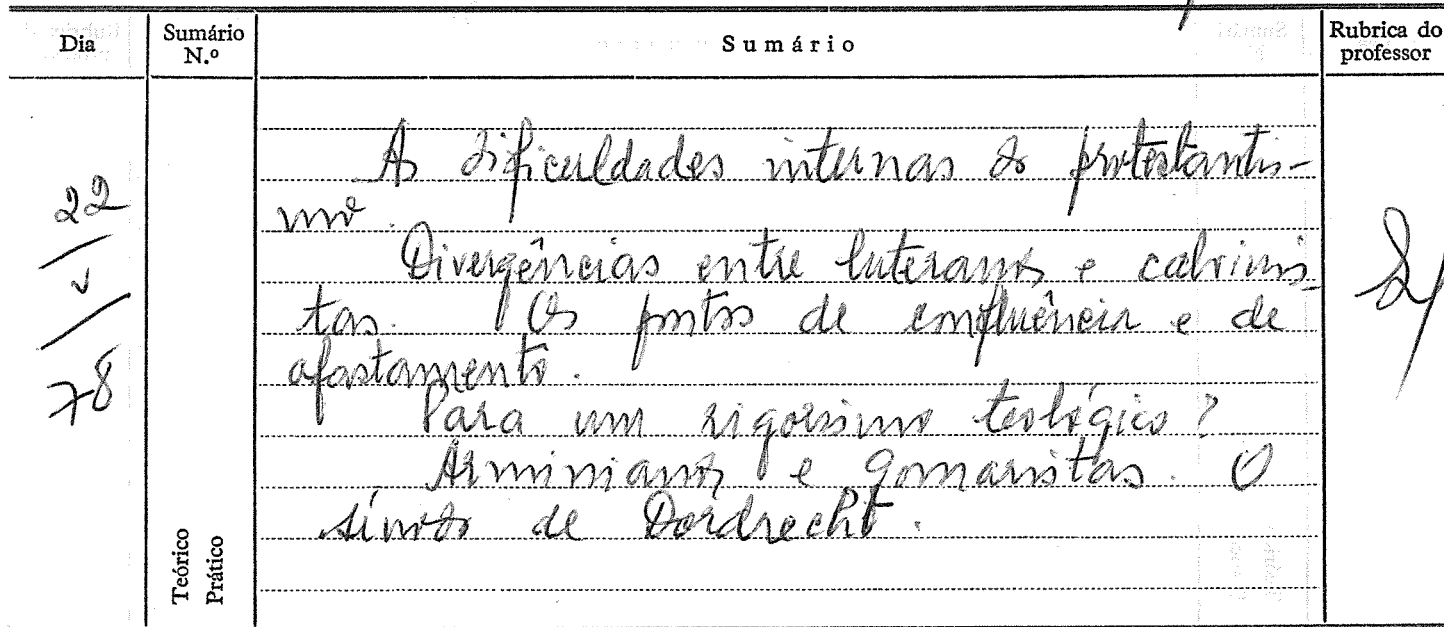 Dia
Sumário N.º
Sumário
Rubrica do professor
22
/ V /
78
As dificuldades internas do protestantis-
mo.
Divergências entre luteranos e calvinis-
tas. Os pontos de confluência e de
afastamento.
Para um rigorismo teológico?
Arminianos e gomaristas. O
sínodo de Dordrecht.
Teórico
Prático